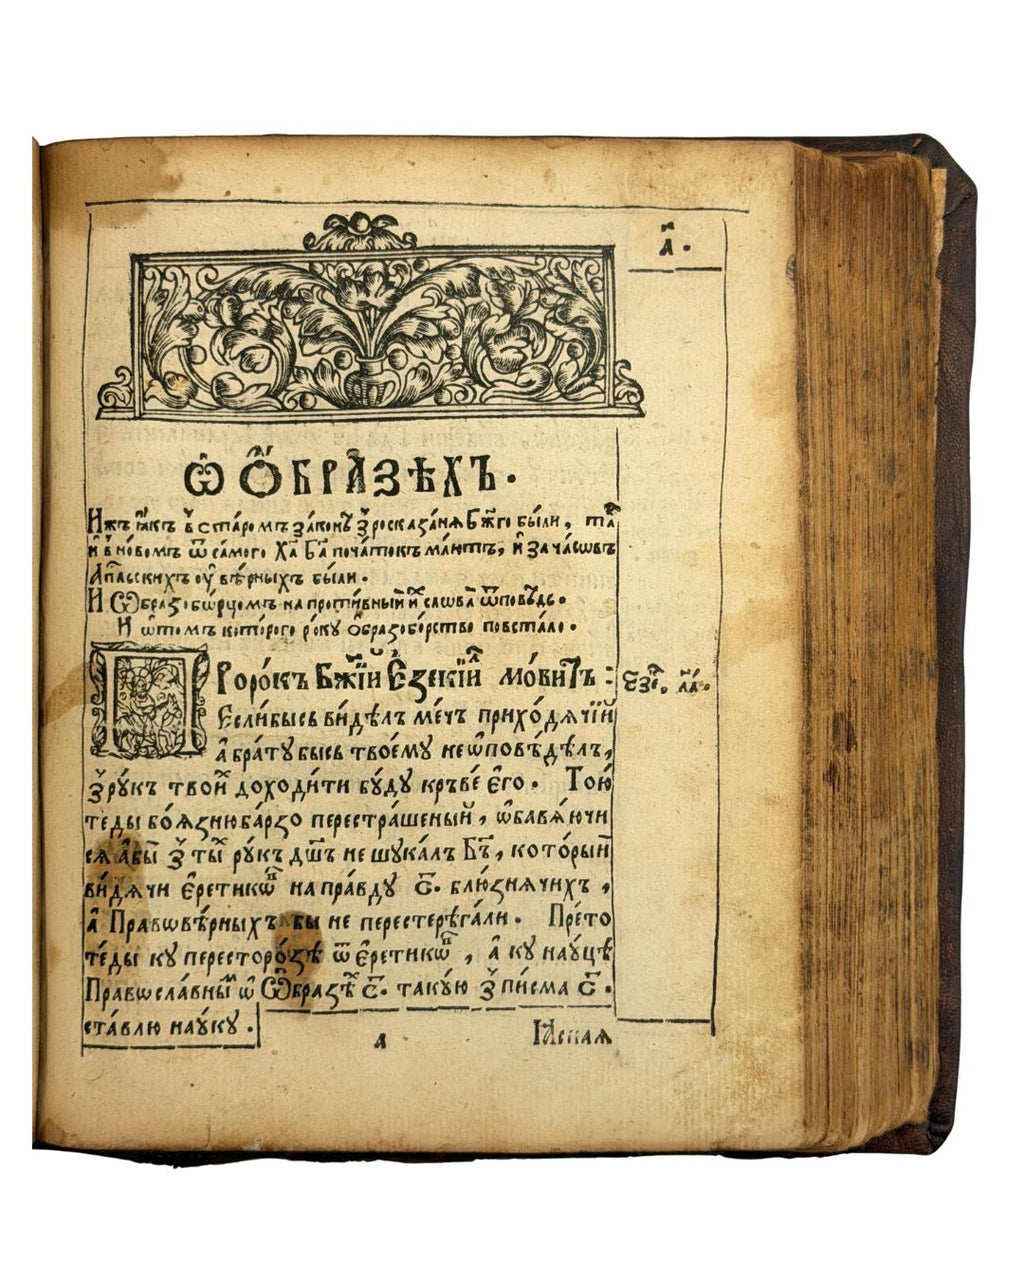 а҃.
Ѡ ОБРАЗѢХЪ.
Ижъ ꙗкъ в старомъ закону з росказаня Бж҃го были, та
и в новомъ ѿ самого Ха҃ Ба҃ початокъ маютъ, и за часѡвъ
Апл҃ьскихъ у вѣрныхъ были.
И Ѡбразобѡрцомъ на противный их слова ѿповѣдь.
И ѡ томъ которого року ѡбразоборство повстало.
Пророкъ Бж҃ій Езекіил мовитъ:
Езе. л҃г.
Если бысь видѣлъ мечъ приходячій
а брату бысь твоему не ѡповѣдѣлъ,
з рукъ твоих доходити буду кръве его. Тою
теды боязню барзо перестрашеный, ѡбавяючи
ся абы з тых рукъ дш҃ъ не шукалъ Бъ҃, который
видячи еретикѡв на правду с҃. блюзнячихъ,
а Правѡвѣрныхъ бы не перестерѣгали. Прето
теды ку пересторозѣ ѿ еретикѡв, а ку науцѣ
Правѡславным ѡ Ѡбразѣх с҃. такую з писма с҃.
ставлю науку.
а Ꙗсная